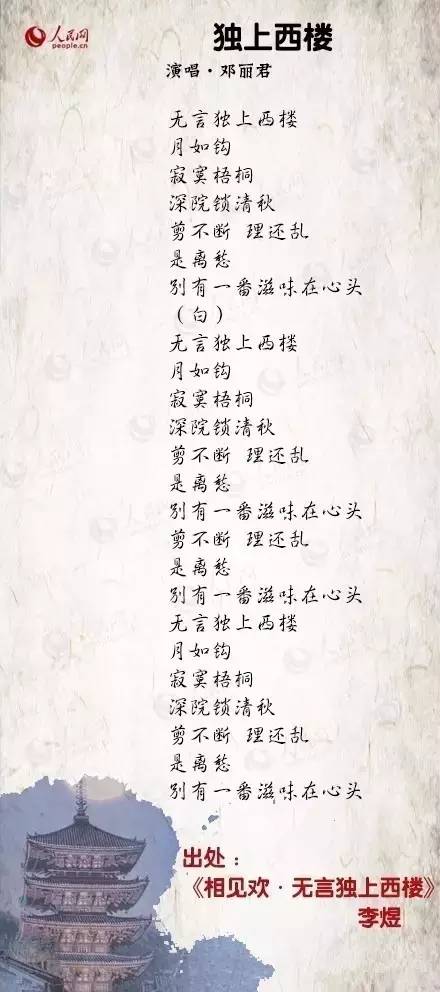 人民网
people.cn
独上西楼
演唱·邓丽君
无言独上西楼
月如钩
寂寞梧桐
深院锁清秋
剪不断 理还乱
是离愁
别有一番滋味在心头
（白）
无言独上西楼
月如钩
寂寞梧桐
深院锁清秋
剪不断 理还乱
是离愁
别有一番滋味在心头
剪不断 理还乱
是离愁
别有一番滋味在心头
无言独上西楼
月如钩
寂寞梧桐
深院锁清秋
剪不断 理还乱
是离愁
别有一番滋味在心头
出处：
《相见欢·无言独上西楼》
李煜